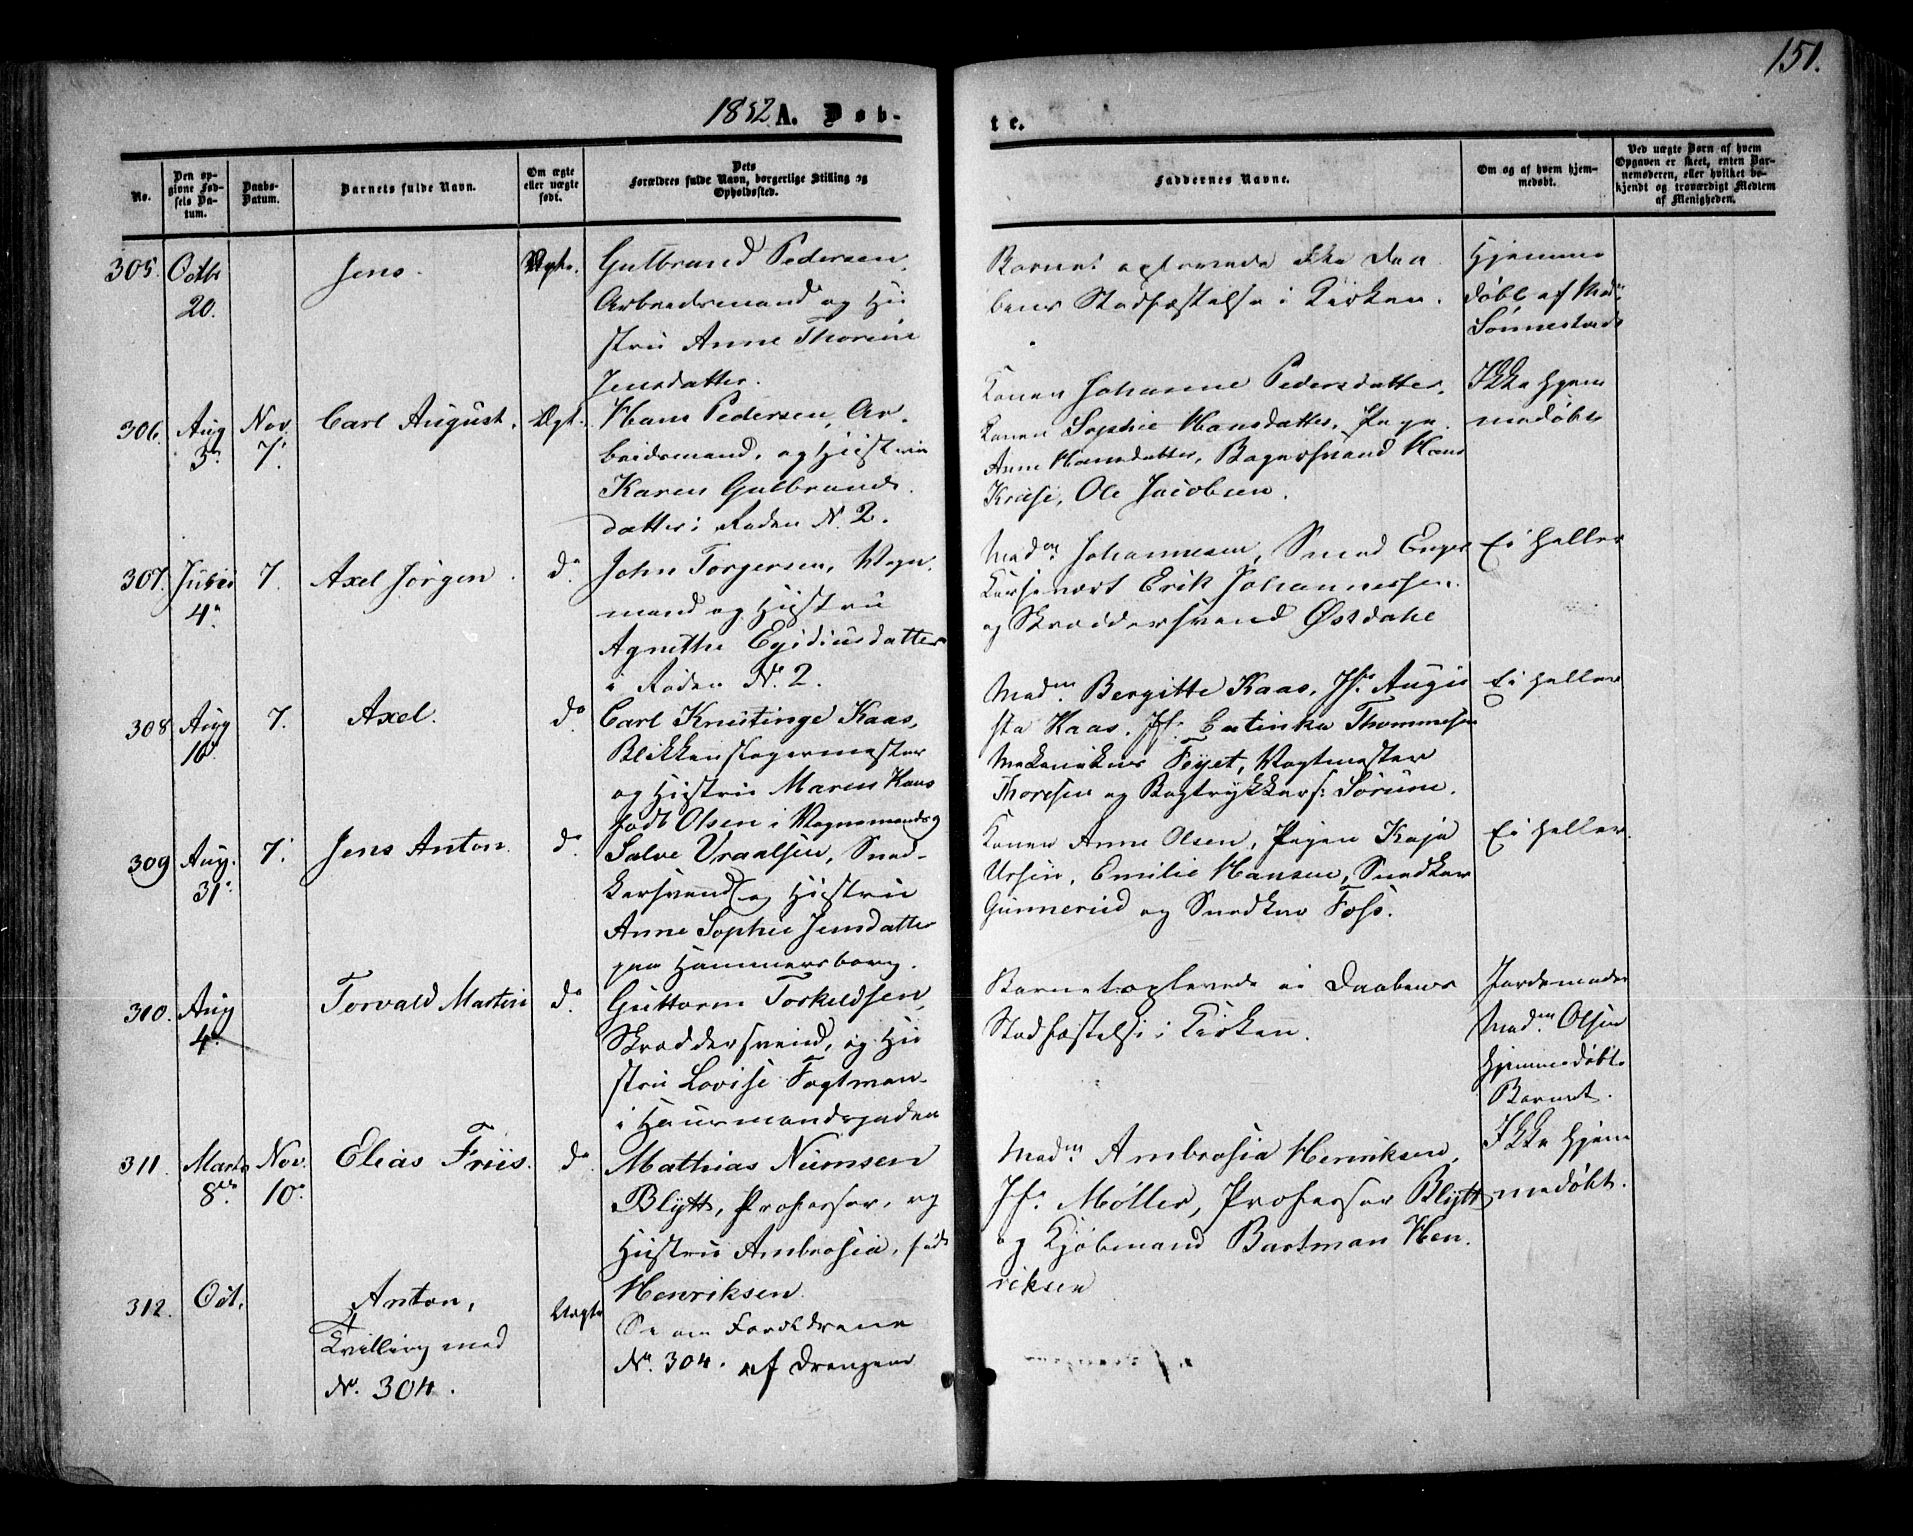 151.
1852 A. Døb-
te.
No.
Den opgivne Fødsels Datum.
Daabs-Datum.
Barnets fulde Navn.
Om ægte eller uægte født.
Dets Forældres fulde Navn, borgerlige Stilling og Opholdssted.
Faddernes Navne.
Om og af hvem hjemmedøbt.
Ved uægte Børn af hvem Opgaven er skeet, enten Barnemoderen, eller hvilket bekjendt og troværdigt Medlem af Menigheden.
305. Octb 20. Jens. Ægte.
Gulbrand Pedersen,
Arbeidsmand og Hu
stru Anne Thorine
Jensdatter.
Barnet oplevede ikke Daa
bens Stadfæstelse i Kirken.
Hjemme
døbt af Mad:
Sønnesteds
306. Aug 3. Nov. 7. Carl August. Ægt.
Hans Pedersen, Ar-
beidsmand, og Hustru
Karen Gulbrands
datter i Roden N. 2.
Konen Johanne Pedersdatter,
Konen Sophie Hansdatter, Pige
Anne Hansdatter, Bagersvend Hans
Kruse, Ole Jacobsen.
Ikke hjem
medøbt
307. Julii 4. 7. Axel Jørgen. do.
John Torgersen, Vogn
mand og Hustru
Agnethe Egidiusdatter
i Roden N. 2.
Madm. Johannesen, Smed Enger
Erik Johannessen
og Skræddersvend Østdahl
Ei heller
308 Aug 10. 7. Axel. do
Carl Knutinge Kaas,
Blikkenslagermester
og Hustru Maren Kaas
født Olsen i Vognmandsg
Madm. Bergitte Kaas, Jfr. Augu
sta Kaas, Jf. Catinka Thommesen
Mekanikus Føyet, Vagtmester
Thoresen og Bogtrykkers: Sørum.
Ei heller
309 Aug. 31. 7. Jens Anton. do.
Salve Vraalsen, Sned-
kersvend og Hustru
Anne Sophie Jensdatter
paa Hammersborg.
Konen Anne Olsen, Pigen Kaja
Ursin, Emilie Hansen, Snedker
Gunnerud og Snedker Foss.
Ei heller.
310. Aug 4. Torvald Martin do
Guttorm Torkildsen,
Skræddersvend, og Hu
stru Lovise Fogtman
i
Barnet oplevede ei Daabens
Stadfæstelse i Kirken.
Jordemoder
Madm. Olsen
hjemmedøbte
Barnet.
311. Marts 8. Nov. 10. Elias Friis. do.
Mathias Numsen
Blytt, Professor, og
Hustru Ambrosia, født
Henriksen.
Madm. Ambrosia Henriksen,
Jfr. Møller, Professor Blytt
og Kjøbmand Bartman Hen
riksen
Ikke hjem
medøbt.
312. Oct. Anton,
Tvilling med
N. 304. Uægte
Se om Forældrene
N. 304. af Drengene